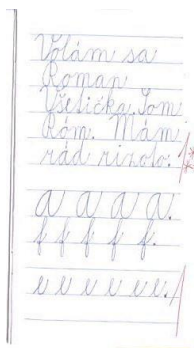 Volám sa
Roman
Všetička. Som
Róm. Mám
rád rizoto.
a a a a.
f f f f f.
e e e e e e.